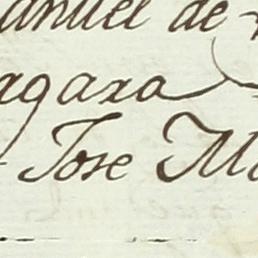 anuel de
agaza
Jose M